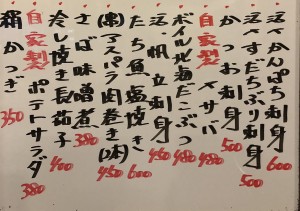 活〆かんぱち刺身 600
活〆すだちぶり刺身 500
かつお刺身 500
自家製 〆サバ 480
ボイル北海だこぶつ 480
活〆帆立刺身 480
たち魚塩焼き 600
(串)アスパラ肉巻き(2本) 480
さば味噌煮 380
冷し焼き長茄子 400
自家製 ポテトサラダ 380
絹かつぎ 350